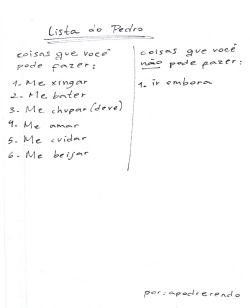 Lista do Pedro
coisas que você
pode fazer:
1- Me xingar
2- Me bater
3- Me chupar (deve)
4- Me amar
5- Me cuidar
6- Me beijar
coisas que você
não pode fazer:
1- ir embora
por: apodrerendo